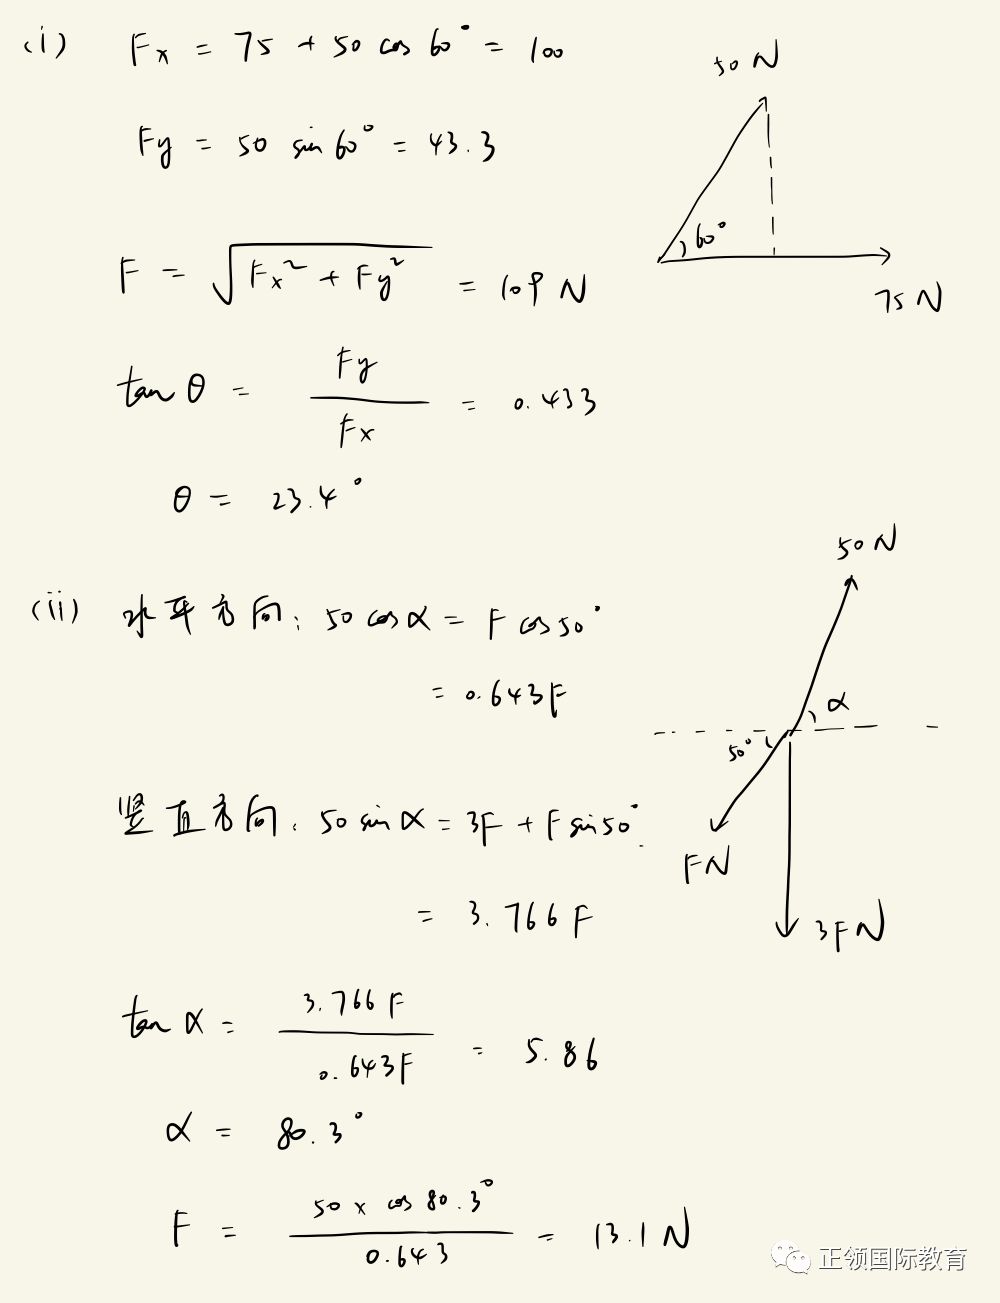 (i) Fx = 75 + 50 cos 60° = 100
50 N
Fy = 50 sin 60° = 43.3
60°
75 N
F = √(Fx² + Fy²) = 109 N
tan θ = Fy / Fx = 0.433
θ = 23.4°
50 N
(ii) 水平方向: 50 cos α = F cos 50°
= 0.643F
α
50°
竖直方向: 50 sin α = 3F + F sin 50°
F N
= 3.766 F
3F N
tan α = 3.766 F / 0.643F = 5.86
α = 80.3°
F = 50 × cos 80.3° / 0.643 = 13.1 N
正领国际教育